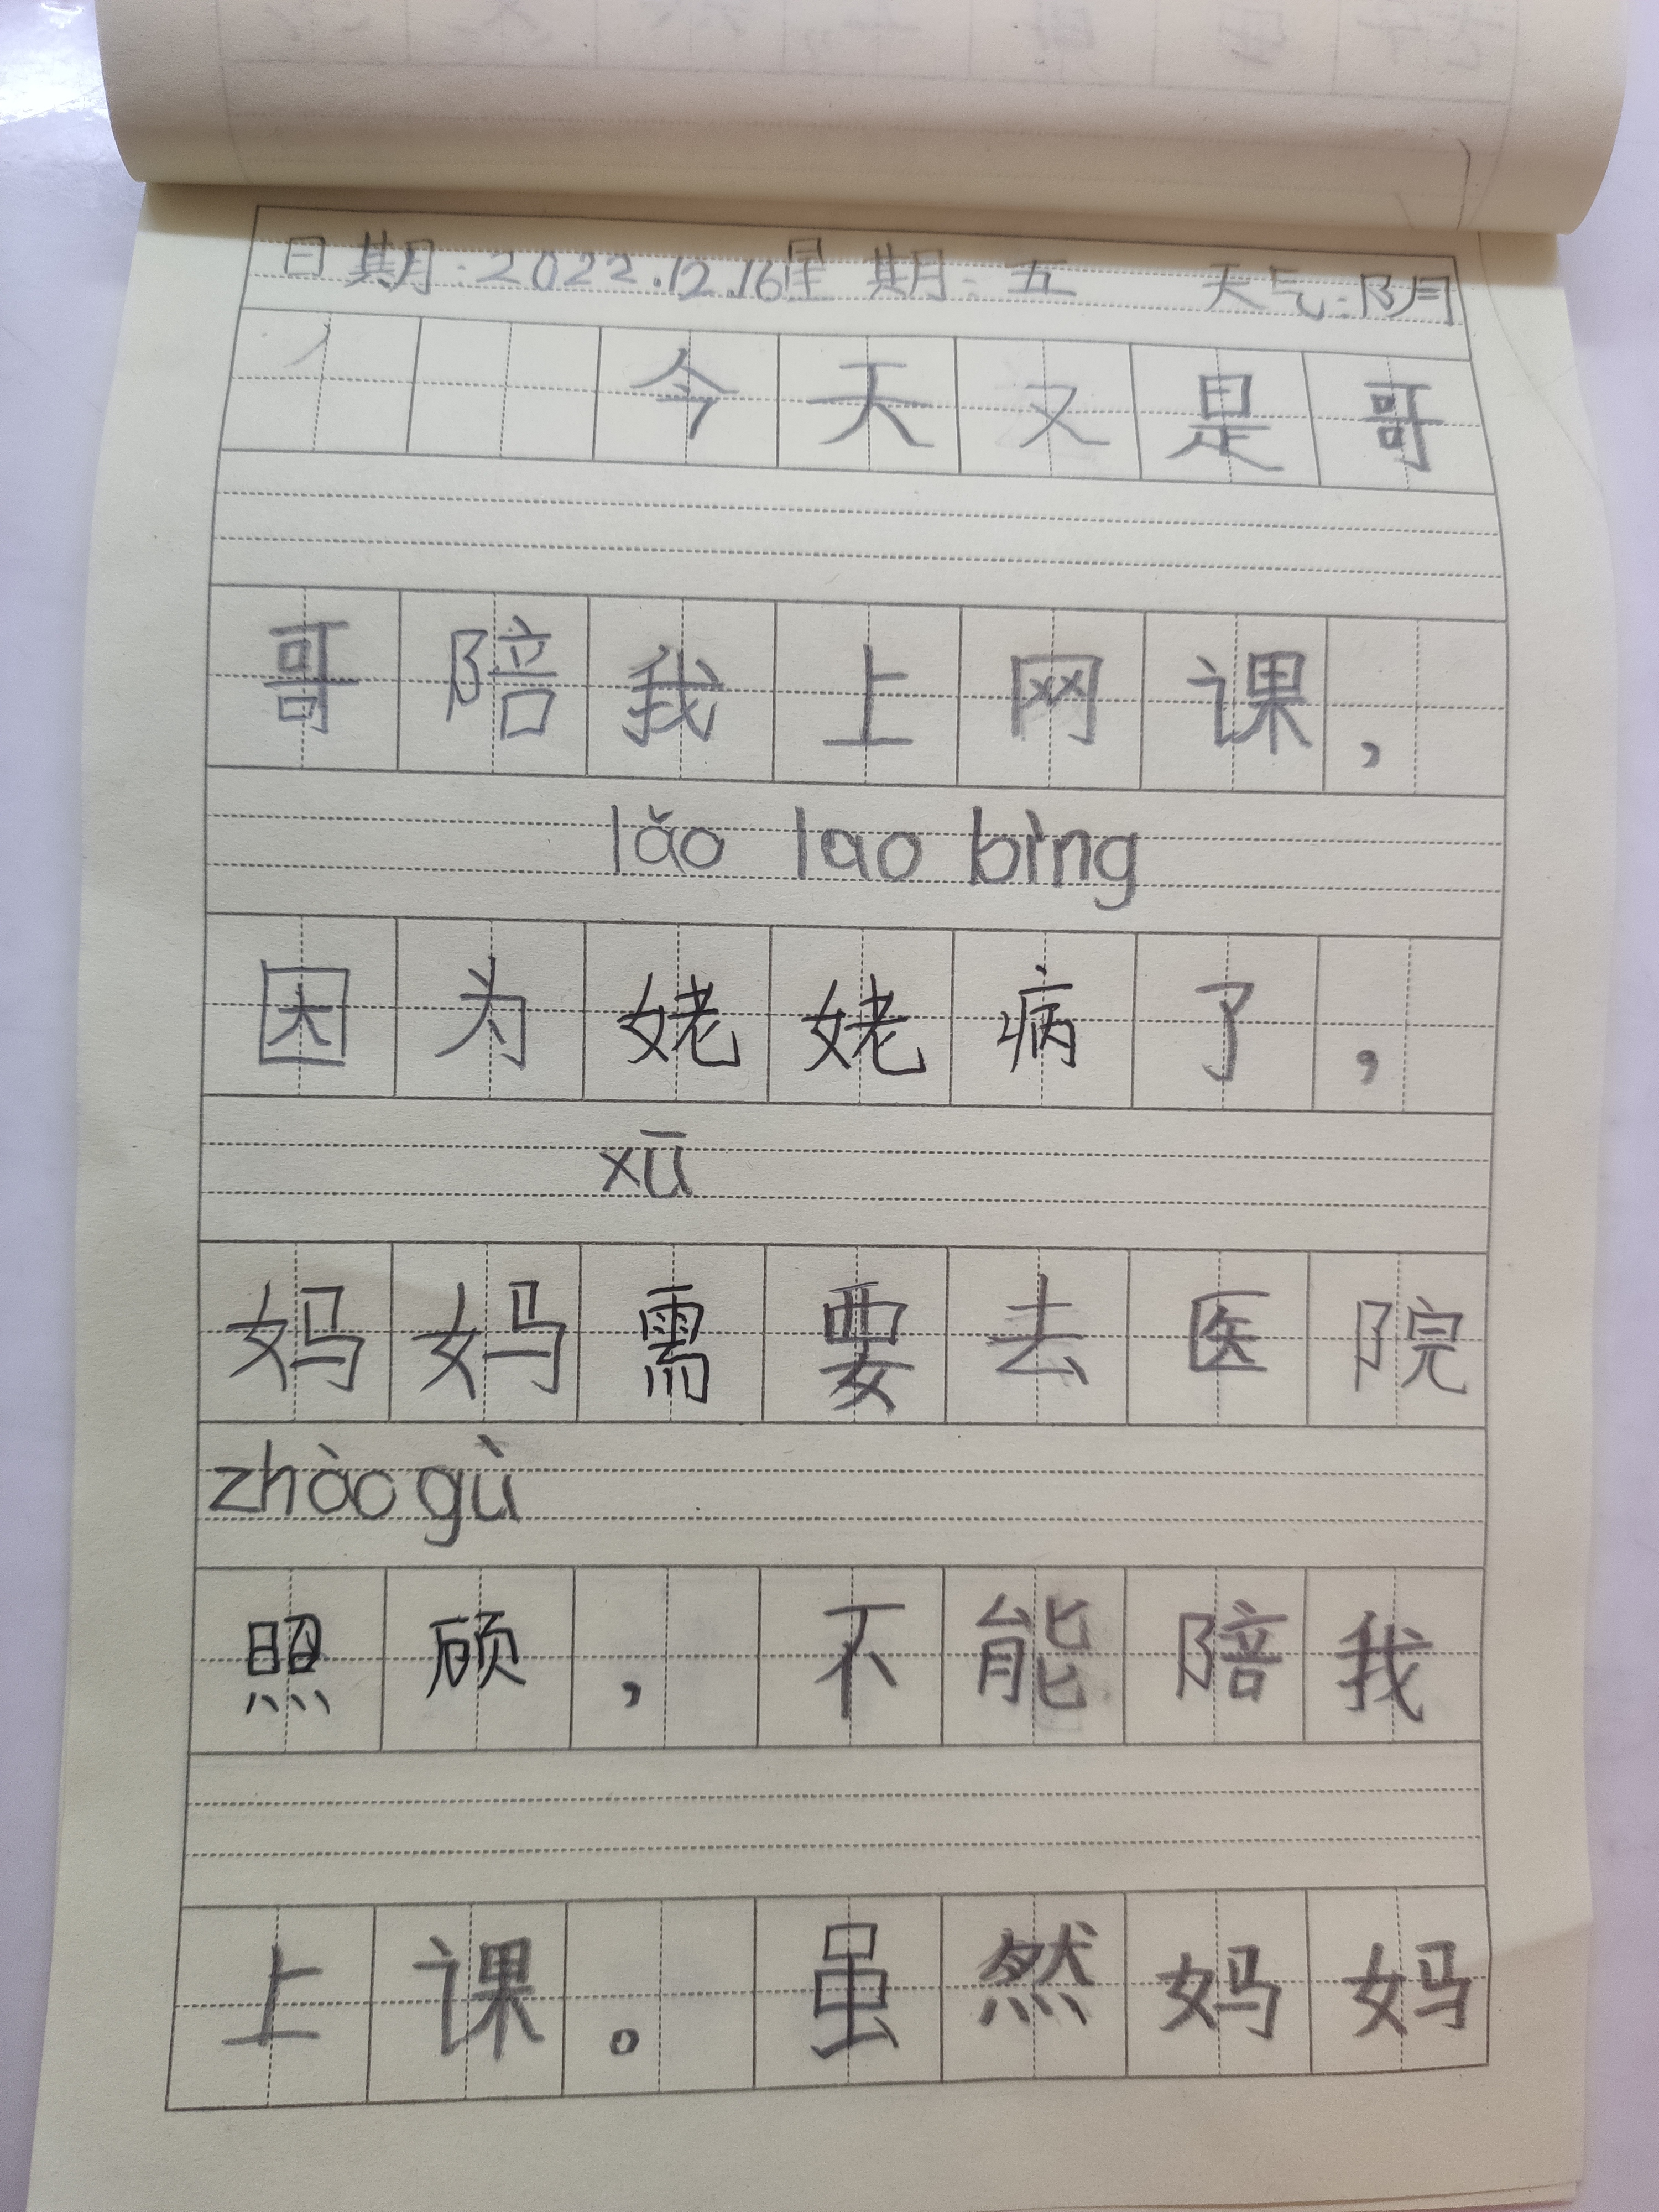 日期:2022.12.16星期:五 天气:阴
今天又是哥
哥陪我上网课，
lǎo lao bìng
因为姥姥病了，
xū
妈妈需要去医院
zhào gù
照顾，不能陪我
上课。虽然妈妈